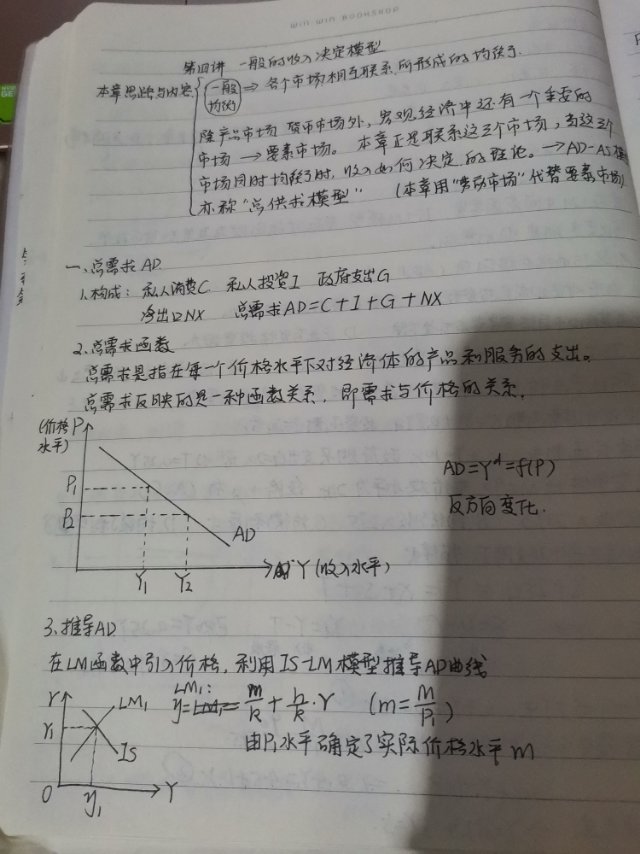 WIN WIN BOOKSHOP
第四讲 一般的收入决定模型
本章思路与内容 一般均衡 ⇒ 各个市场相互联系,所形成的均衡.
除产品市场、货币市场外,发现经济中还有一个重要的
市场 → 要素市场。本章正是联系这三个市场,当这三个
市场同时均衡时,收入如何决定的理论。→AD-AS模
亦称"总供求模型" (本章用"劳动市场"代替要素市场)
一、总需求AD.
1.构成: 私人消费C 私人投资I 政府支出G
净出口NX 总需求AD=C+I+G+NX
2.总需求函数
总需求是指在每一个价格水平下对经济体的产品和服务的支出。
总需求反映的是一种函数关系,即需求与价格的关系.
(价格水平) P
P1
P2
AD
Y1 Y2
Y (收入水平)
AD=Yᵈ=f(P)
反方向变化.
3.推导AD
在LM函数中引入价格,利用IS-LM模型推导AD曲线
LM1:
y= m/k + h/k·r (m=M/P1)
由P1水平确定了实际价格水平m
r
r1
LM1
IS
O y1 Y